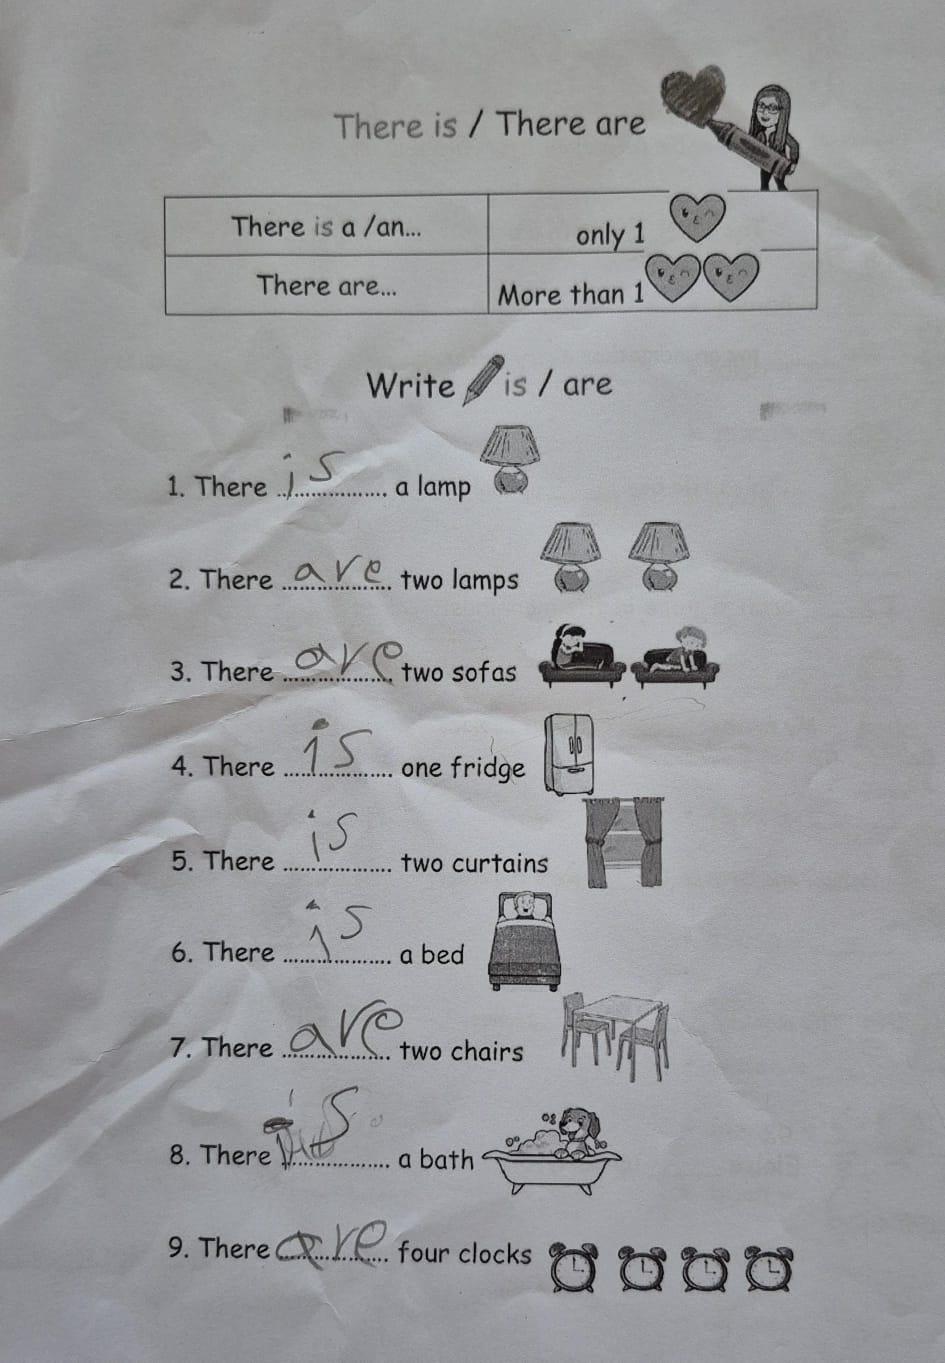 There is / There are
There is a /an... only 1
There are... More than 1
Write is / are
1. There is a lamp
2. There are two lamps
3. There are two sofas
4. There is one fridge
5. There is two curtains
6. There is a bed
7. There are two chairs
8. There is a bath
9. There are four clocks